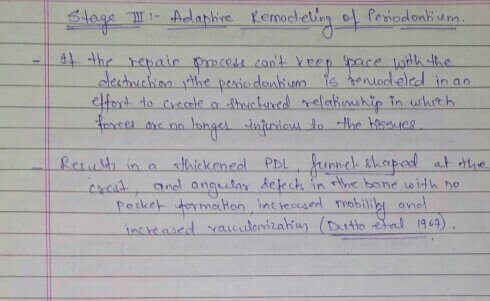 Stage III :- Adaptive Remodeling of Periodontium.
- If the repair process can't keep space with the
destruction, the periodontium is remodeled in an
effort to create a structured relationship in which
forces are no longer injurious to the tissues.
- Results in a thickened PDL, funnel shaped at the
crest, and angular defects in the bone with no
pocket formation, increased mobility and
increased vascularization (Dotto etal 1967).